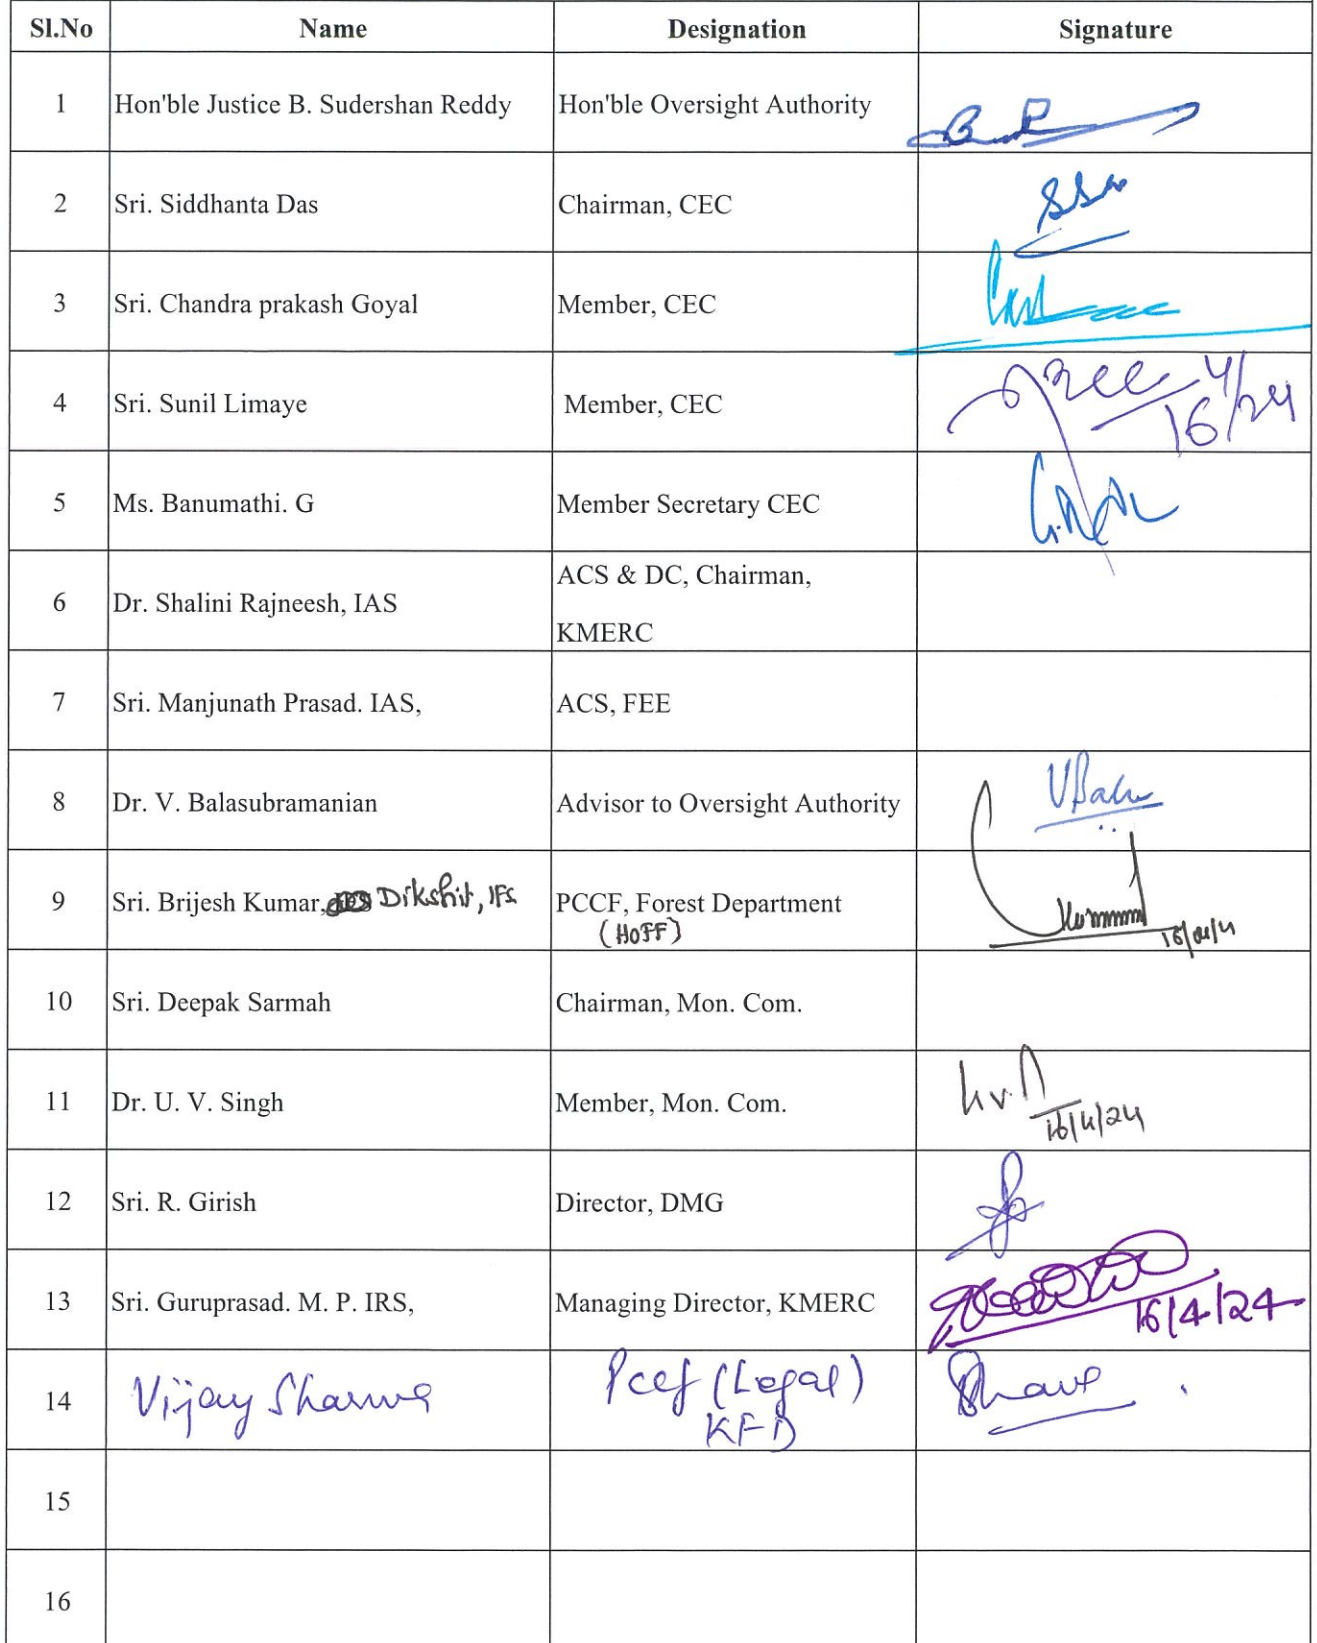 Sl.No Name Designation Signature
1 Hon'ble Justice B. Sudershan Reddy Hon'ble Oversight Authority
2 Sri. Siddhanta Das Chairman, CEC
3 Sri. Chandra prakash Goyal Member, CEC
4 Sri. Sunil Limaye Member, CEC 16/4/24
5 Ms. Banumathi. G Member Secretary CEC
6 Dr. Shalini Rajneesh, IAS ACS & DC, Chairman,
KMERC
7 Sri. Manjunath Prasad. IAS, ACS, FEE
8 Dr. V. Balasubramanian Advisor to Oversight Authority VBalu
9 Sri. Brijesh Kumar, Dikshit, IFS PCCF, Forest Department
(HOFF)
10 Sri. Deepak Sarmah Chairman, Mon. Com.
11 Dr. U. V. Singh Member, Mon. Com. 16/4/24
12 Sri. R. Girish Director, DMG
13 Sri. Guruprasad. M. P. IRS, Managing Director, KMERC 16/4/24
14 Vijay Sharma Pccf (Legal)
KFD
15
16